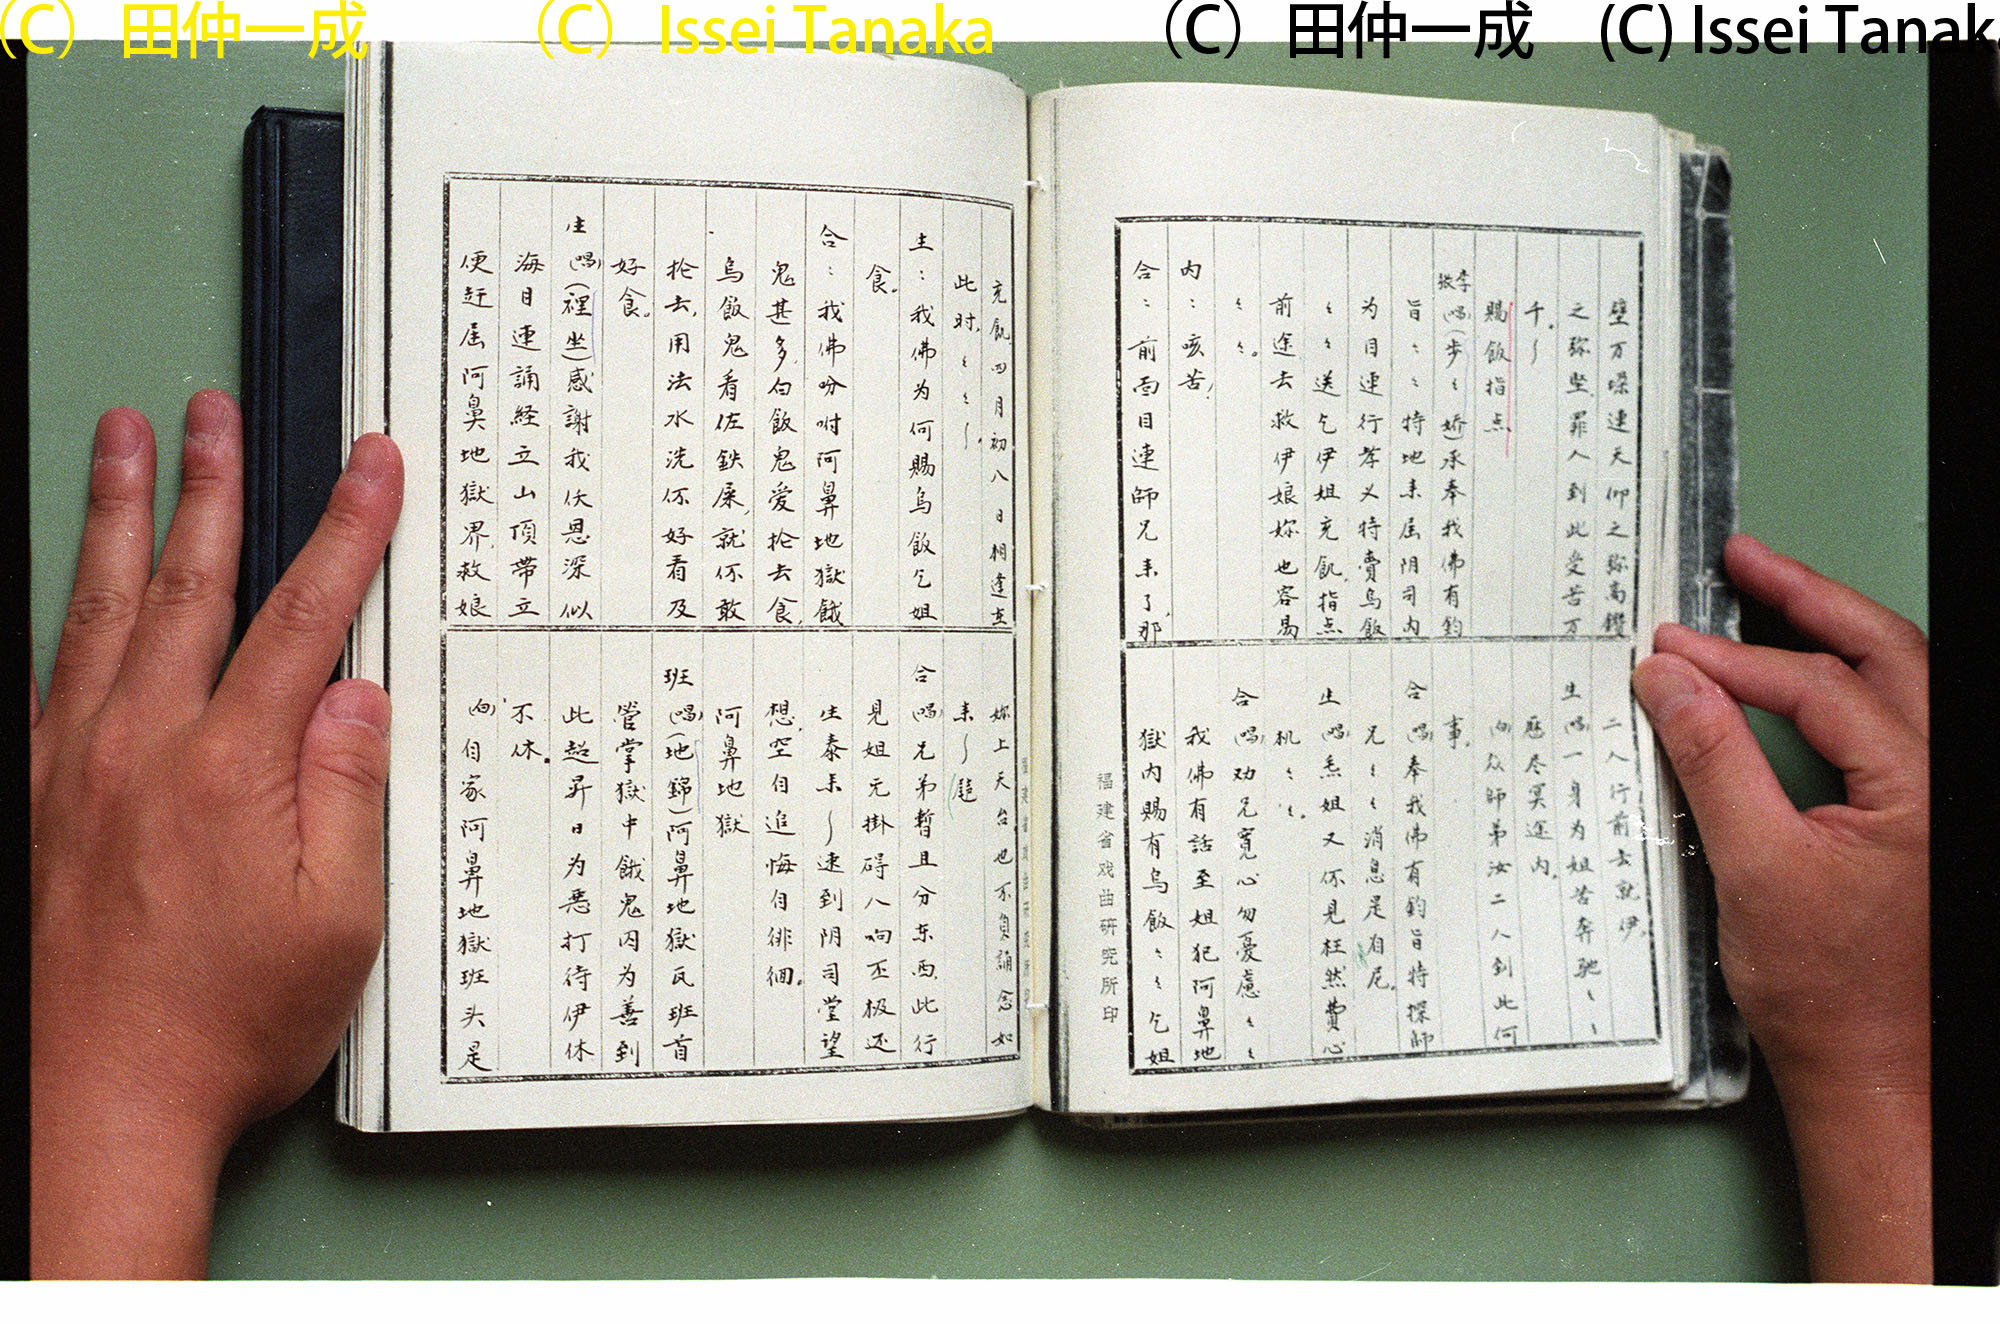 (C) 田仲一成
(C) Issei Tanaka
(C) 田仲一成
(C) Issei Tanaka
壁万垛連天仰之弥高鑽
之弥堅罪人到此受苦万
千。〜
賜飯指点
李張(唱)(步々嬌)承奉我佛有鈞
旨ミミ特地来届阴司内
为目連行孝义特賣乌飯
ミミ送乞伊姐充飢,指点
前途去救伊娘妳也容易
ミミ。
内：咳苦,
合：前面目連師兄来了,那
二人行前去就伊。
生(唱)一身为姐苦奔驰ミミ
歷尽冥途内。
(白)众師弟汝二人到此何
事。
合(唱)奉我佛有鈞旨特探師
兄ミミ消息是有尼。
生(唱)焘姐又伓見枉然費心
机ミミ。
合(唱)劝兄寬心勿憂慮ミミ
我佛有話至姐犯阿鼻地
獄内賜有乌飯ミミミ乞姐
福建省戏曲研究所印
充飢四月初八日相逢在
此时,ミミ〜
生：我佛为何賜乌飯乞姐
食。
合：我佛吩咐阿鼻地獄餓
鬼甚多,白飯鬼爱抢去食,
乌飯鬼看佐鉄屎,就伓敢
抢去,用法水洗伓好看及
好食。
生(唱)(裡坐)感謝我伕恩深似
海目連誦経立山頂帶立
便赶届阿鼻地獄界,救娘
妳上天台也不負誦念如
来〜
合(唱)兄弟暫且分东西,此行
見姐元掛碍八响丕极还
生泰来〜速到阴司堂望
想,空自追悔自徘徊。
阿鼻地獄
班(唱)(地錦)阿鼻地獄瓦班首
管掌獄中餓鬼囚为善到
此超昇日为恶打待伊休
不休。
(白)自家阿鼻地獄班头是